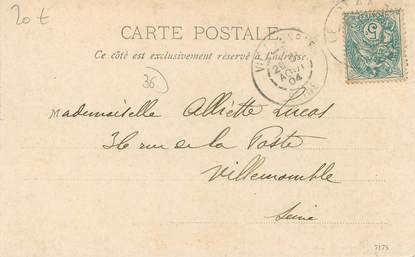 20 €
CARTE POSTALE
Ce côté est exclusivement réservé à l'adresse.
36
AOUT
04
5
Mademoiselle Alliette Lucas
36 rue de la Poste
Villemomble
Seine